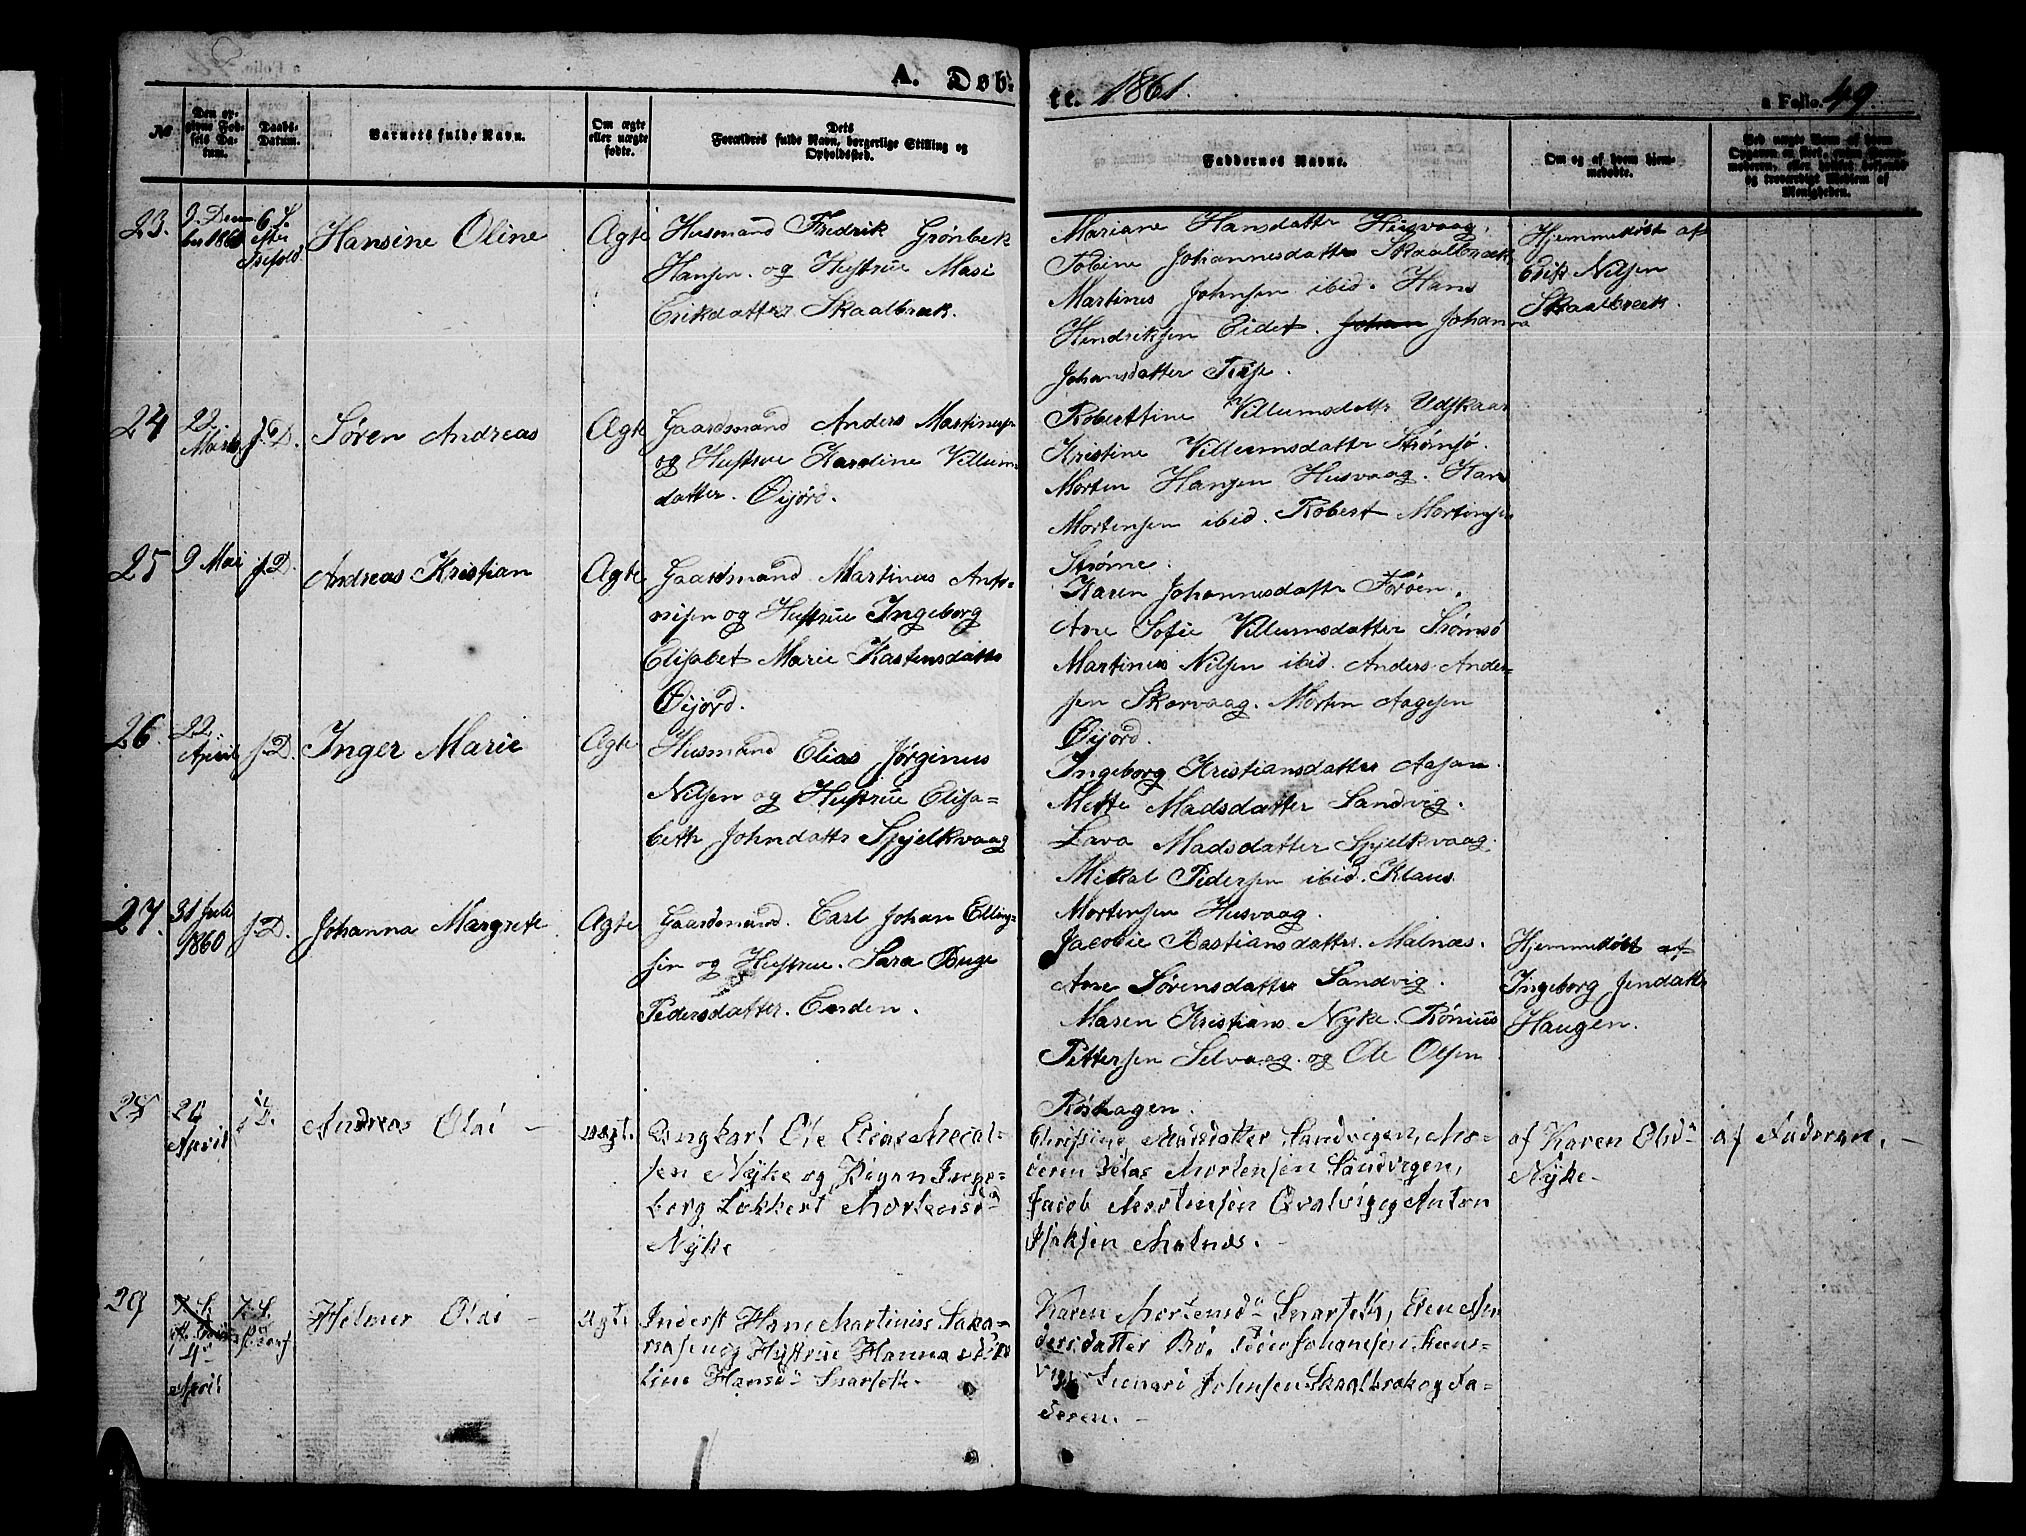 A. Døb-
te. 1861.
a Folio. 49
No
Daabs-
Datum.
Barnets fulde Navn.
Om ægte
eller uægte
fødte.
Dets
Forældres fulde Navn, borgerlige Stilling og
Opholdssted.
Faddernes Navne.
Om og af hvem hjem-
medøbte.
23.
6 S.
efter
Hansine Oline
Ægte
Husmand Fredrik Grønbek
Hansen og Hustrue Masi
Erikdatter Skaalbræk.
Mariane Hansdatter Husvaag.
Johannesdatter Skaalbræk
Martines Johnsen ibid. Hans
Hendriksen Eidet. Johan Johanna
Johansdatter
Hjemmedøbt af
Erik Nilsen
Skaalbræk.
24
22.
Marts
f. D.
Søren Andreas
Ægte
Gaardmand Anders Martinusen
og Hustrue Karoline Villum
datter. Øijord.
Roberttine Villumsdatter Udskaar
Kristine Villumsdatter Strømsø.
Morten Hansen Husvaag. Hans
Mortensen ibid. Robert Mortensen
Strøme.
25
9 Mai
f. D.
Andreas Kristian
Ægte
Gaardmand Martinus Anto-
nisen og Hustrue Ingeborg
Elisabet Marie Kastensdatter
Øijord.
Karen Johannesdatter Forøen.
Ane Sofie Villumsdatter Strømsø
Martinus Nilsen ibid. Anders Ander-
sen Skorvaag. Morten Aagesen
Øijord.
26.
22.
April
f. D.
Inger Marie
Ægte
Husmand Elias Jørginus
Nilsen og Hustrue Elisa-
beth Johndatter Spjelkvaag
Ingeborg Kristiansdatter Aasan.
Mette Madsdatter Sandvig.
Lava Madsdatter Spjelkvaag.
Mikal Pedersen ibid. Klaus
Mortensen Husvaag.
27.
31 Juli
1860
f. D.
Johanna Margrete
Ægte
Gaardmand. Carl Johan Elling-
sen og Hustrue. Sara
Pedersdatter. Enden.
Jacobie Bastiansdatter. Malnæs.
Ane Sørensdatter Sandvig.
Maren Kristians. Nyke. Rønius
Pettersen Selvaag. og Ole Olsen
Røshagen.
Hjemmedøbt af
Ingeborg Jendatter
Haugen.
28
24
April
Andreas Olai –
uægt.
Ungkarl Ole Elias
sen Nyke og Pigen Inge-
borg Lokkert Mortensd
Nyke
Madsdatter Sandvigen, Mo-
deren, Mortensen Sandvigen,
Jacob Mortensen Qvalvig og Anton
Isaksen Malnæs. –
af Karen Olsd
Nyke –
af Faderen. –
29
4
April
7. S.
Helmer Olai –
Ægte
Inderst Hans Martinus Saka-
riasen og Hustrue Hanna
line Hansd Snarset. –
Karen Mortensd Snarset,
dersdatter Bø, Peder Johansen Steens-
vig, Johnsen Skaalbrak og Fa-
deren. –